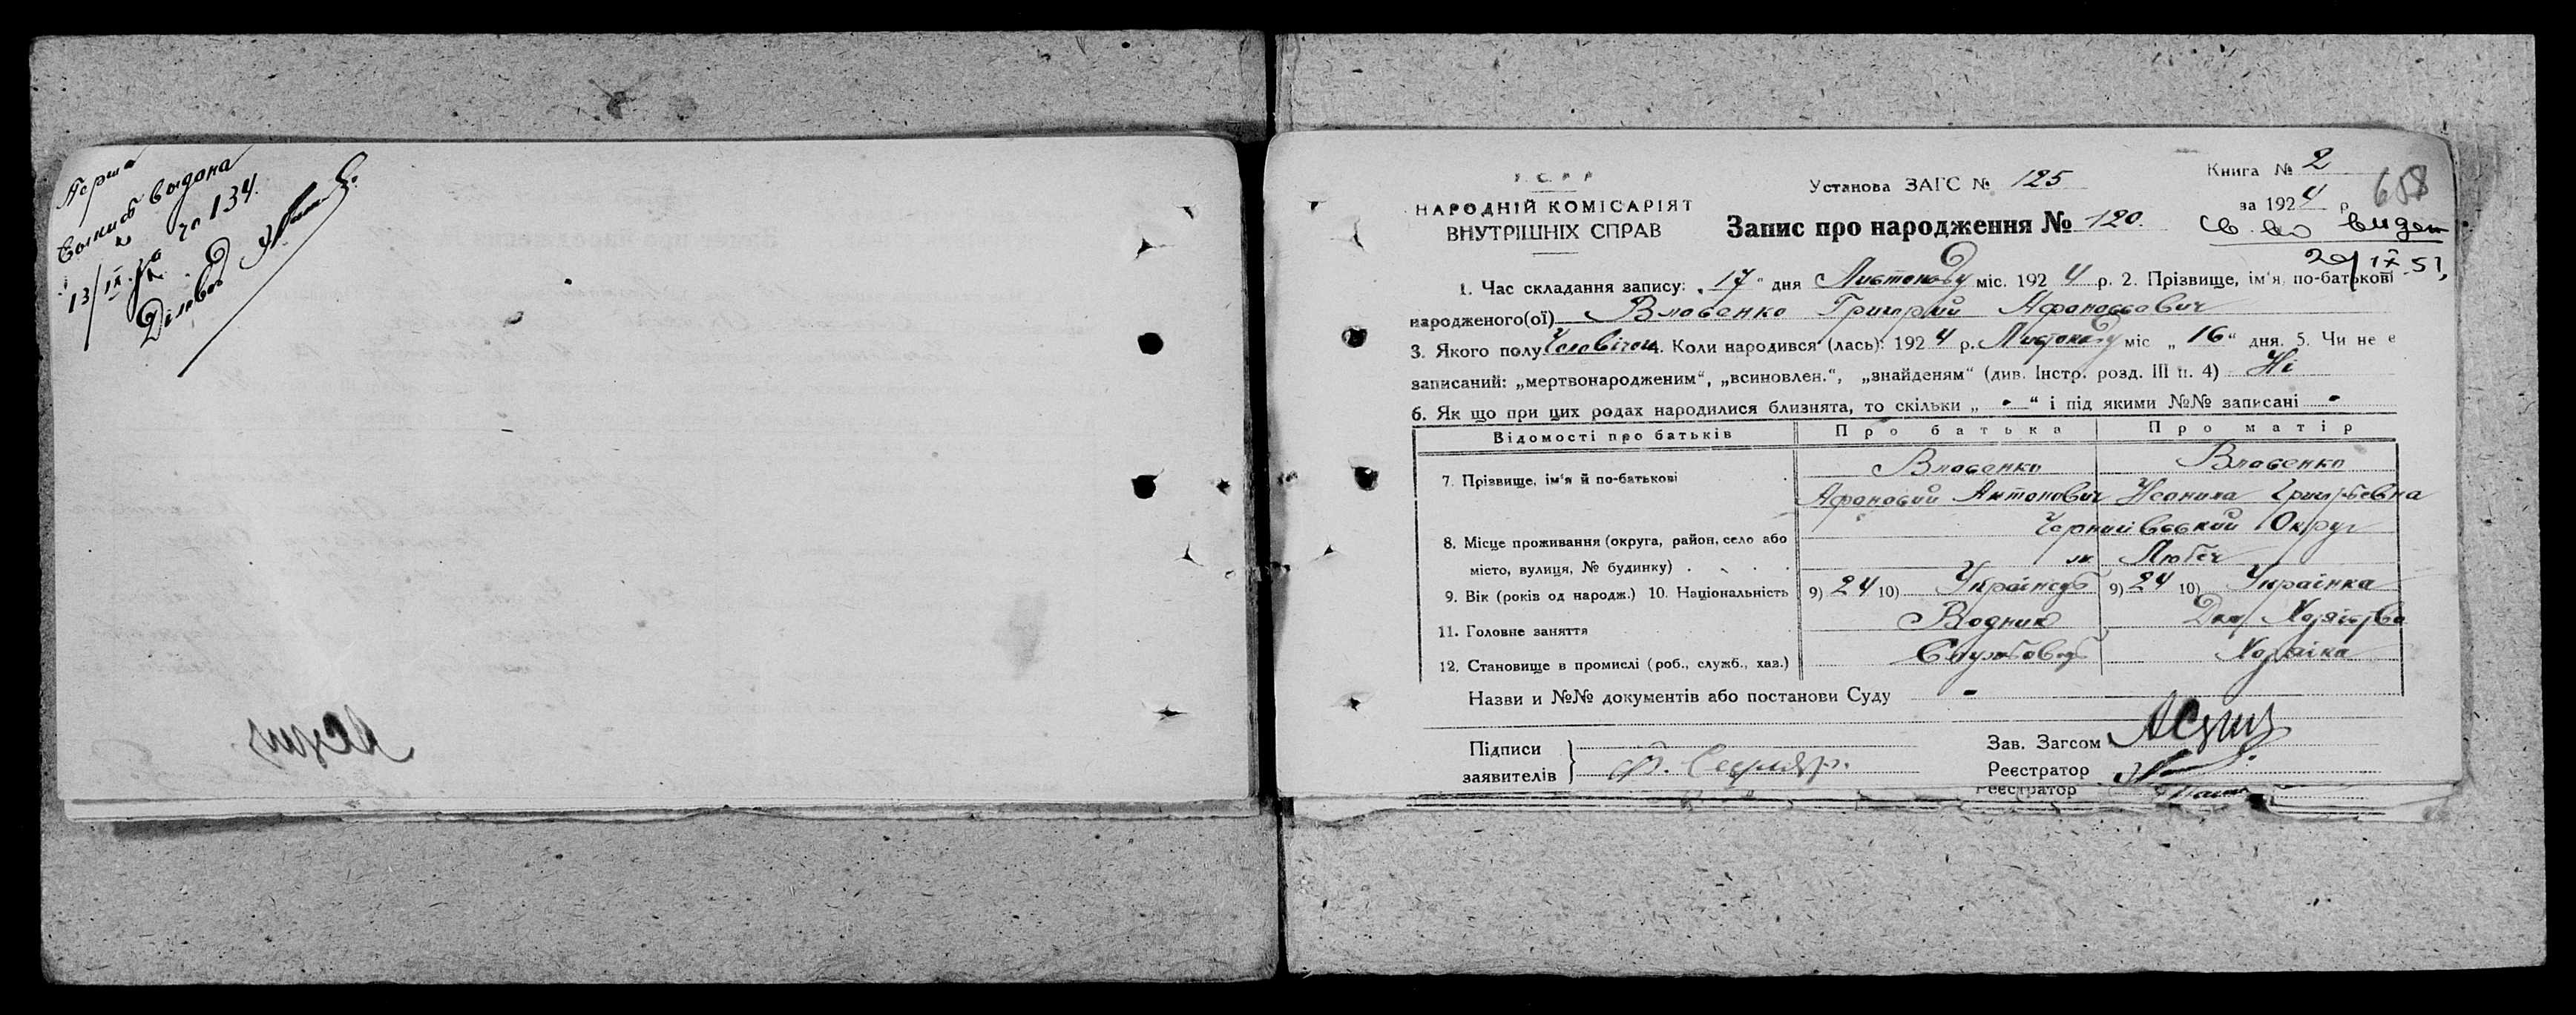 Перша
выпись выдана
13/IX за № 134.
Діловод
У.С.Р.Р.
НАРОДНІЙ КОМІСАРІЯТ
ВНУТРІШНІХ СПРАВ
Установа ЗАГС № 125
Запис про народження № 120.
Книга № 2
за 1924 р.
658
Св-во видан
29/IX-51,
1. Час складання запису: „17“ дня Листопаду міс. 1924 р. 2. Прізвище, ім'я, по-батькові
народженого(ої) Власенко Григорий Афонасович
3. Якого полу Чоловічого 4. Коли народився (лась): 1924 р. Листопаду міс „16“ дня. 5. Чи не є
записаний: „мертвонародженим“, „всиновлен.“, „знайденям“ (див. Інстр. розд. III п. 4) Ні
6. Як що при цих родах народилися близнята, то скільки „ - “ і під якими №№ записані -
Відомості про батьків Про батька Про матір
7. Прізвище, ім'я й по-батькові Власенко Власенко
Афонасий Антонович Неонила Григорьевна
8. Місце проживання (округа, район, село або Чернигівський Округ
місто, вулиця, № будинку) . . . . м. Любеч
9. Вік (років од народж.) 10. Національність 9) 24 10) Українець 9) 24 10) Українка
11. Головне заняття Водник Дом. Хозяйство
12. Становище в промислі (роб., служб., хаз.) Службовець Хозяйка
Назви и №№ документів або постанови Суду -
Підписи
заявителів
Зав. Загсом
Реєстратор
Реєстратор